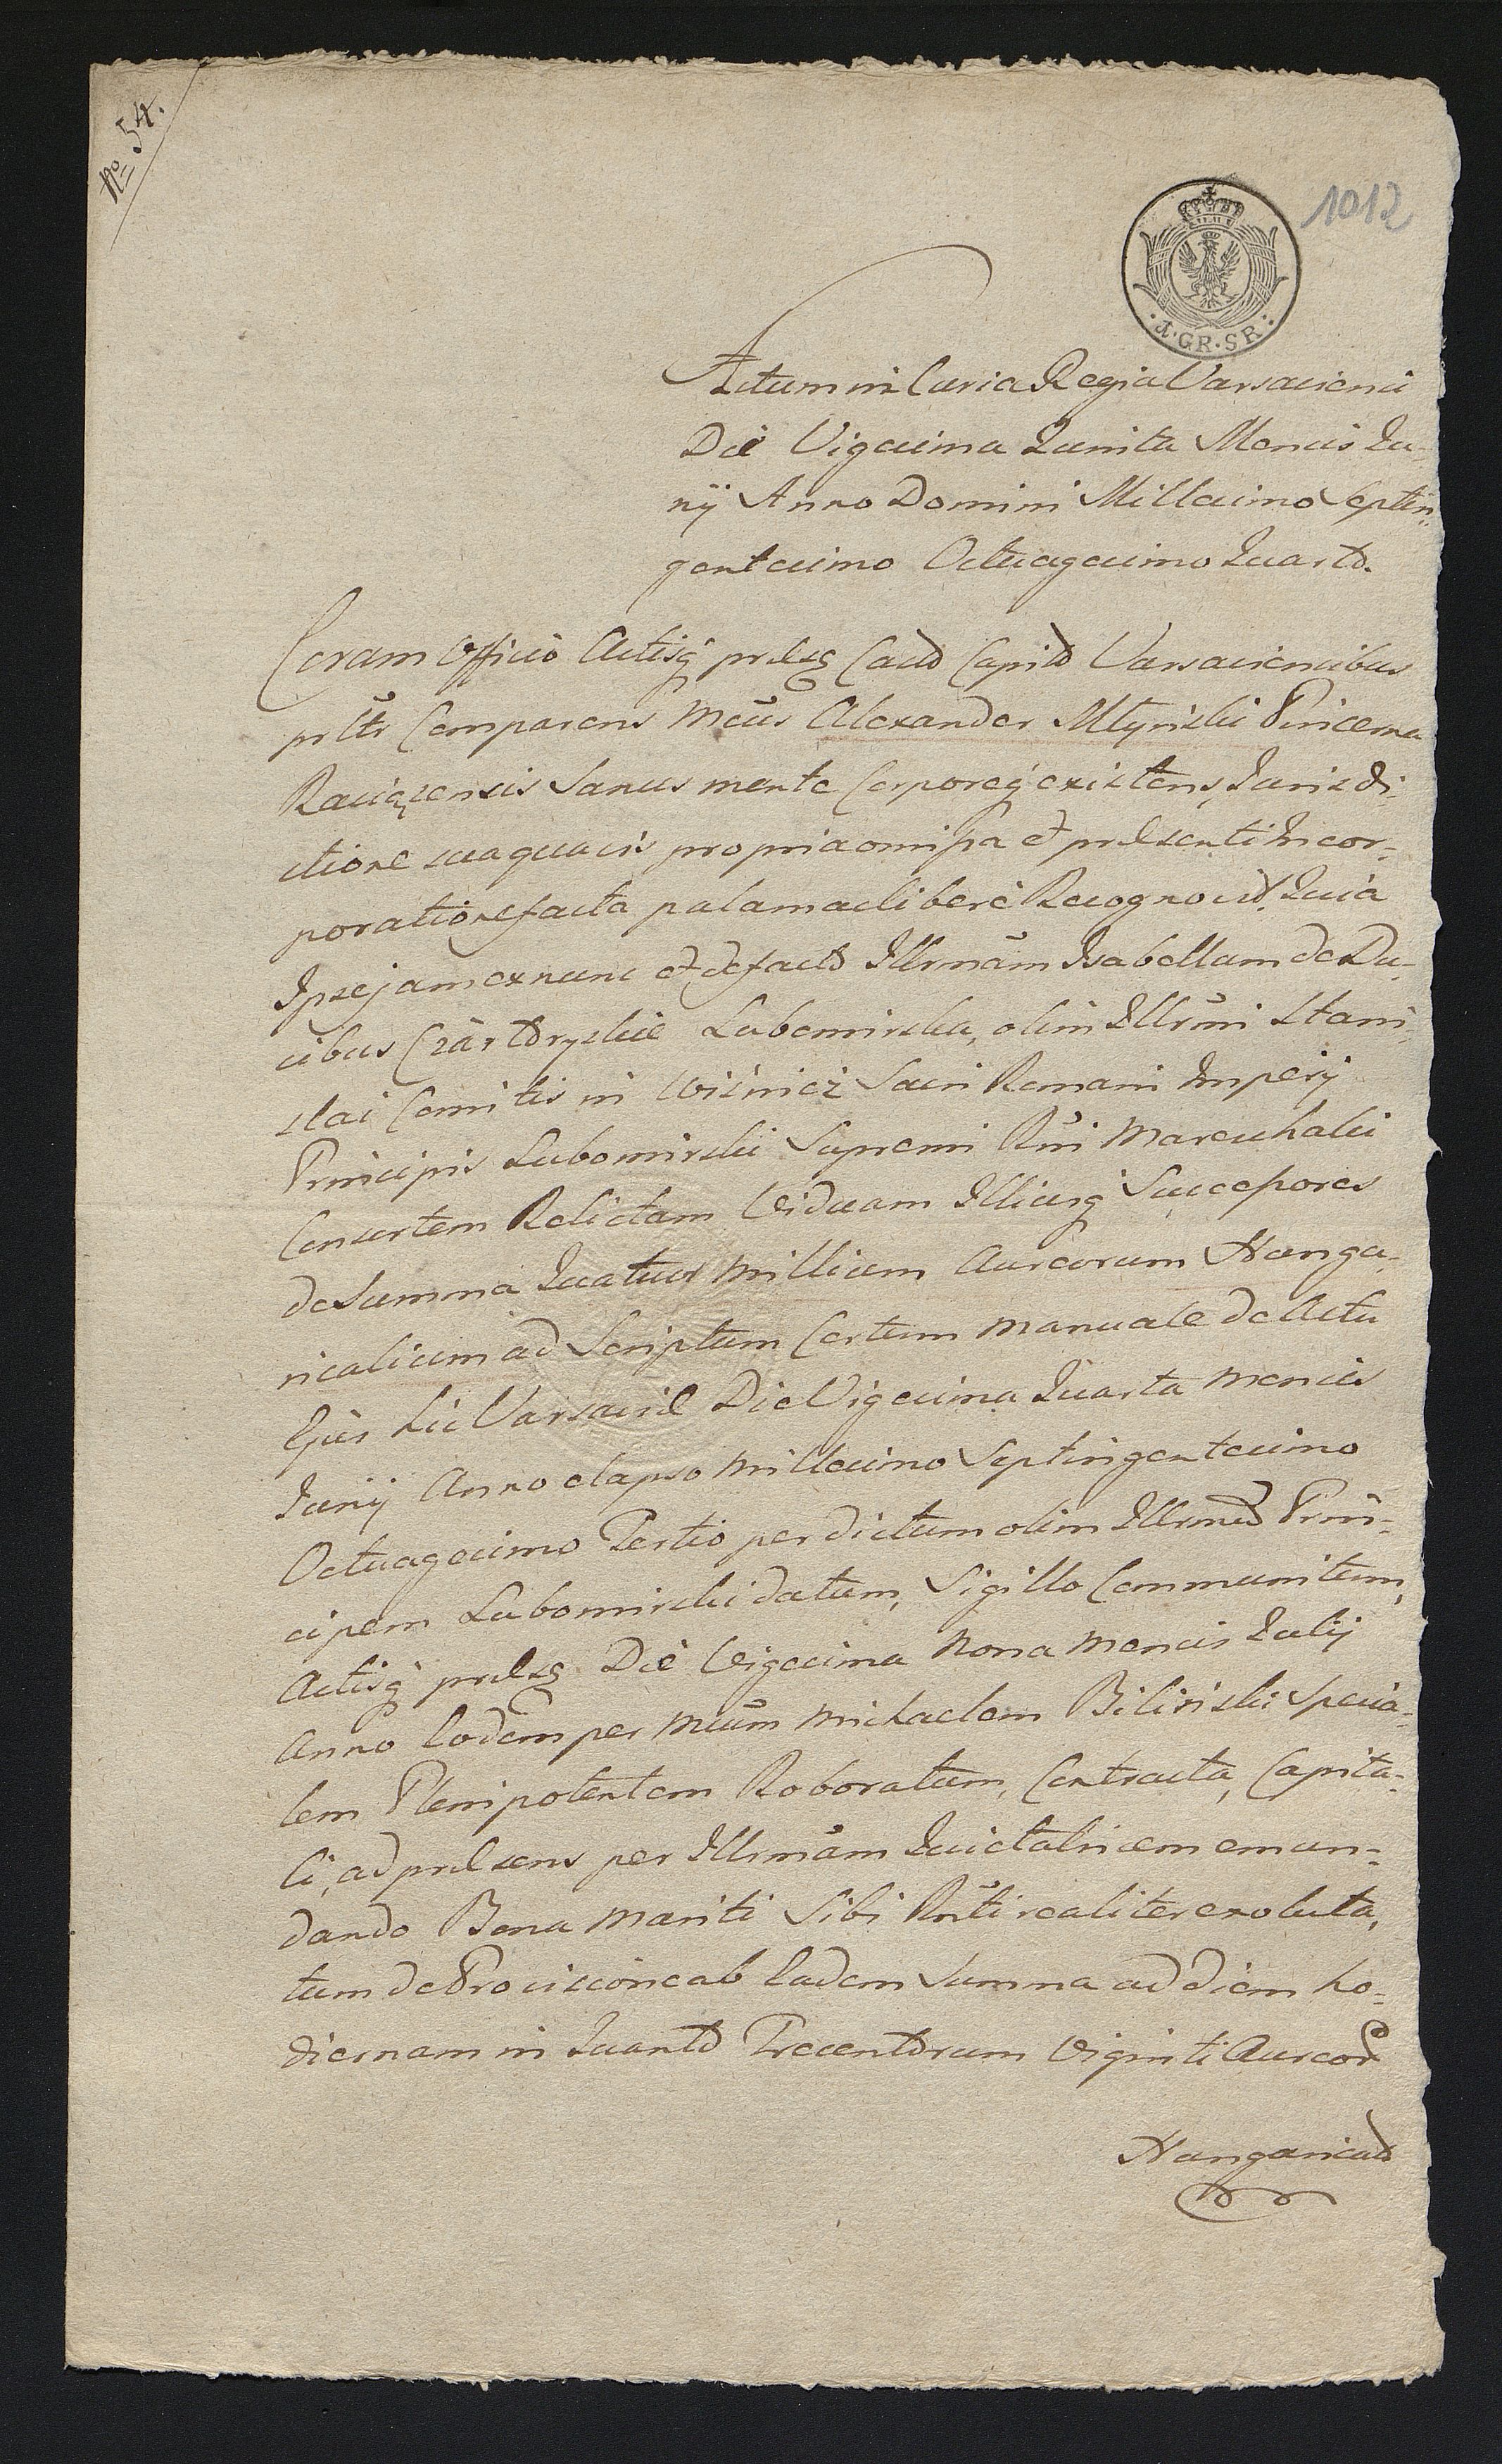 No 54.
1012
1·GR·SR·
Actum in Curia Regia Varsaviensi
Die Vigesima Quinta Mensis Ju-
nij Anno Domini Millesimo Septin-
gentesimo Octuagesimo Quarto.
Coram Officio Actisq pnlsg Castr Capitl Varsaviensibus
prltr Comparens Mcus Alexander Młynski Pincerna
Raciązensis Sanus mente Corporeq existens, Jurisdi-
ctione suaquavis propria omissa et prlsenti Incor-
poratione facta palam ac libere Recognovit. Quia
Ipse jam ex nunc et defacto Illrmam Isabellam de Du-
cibus Czartoryskie Lubomirska, olim Illrmi Stani-
slai Comitis in Wisnicz Sacri Romani Imperij
Principis Lubomirski Supremi Rni Mareschalci
Consortem Relictam Viduam Illiusq Successores
de Summa Quatuor Millium Aureorum Hunga-
ricalium ad Scriptum Certum manuale de Actu
Ejus hic Varsavil Die Vigesima Quarta Mensis
Junij Anno elapso Millesimo Septingentesimo
Octuagesimo Tertio per dictum olim Illrmum Prin-
cipem Lubomirski datum, Sigillo Communitum,
Actisq prlsg Die Vigesima Nona Mensis Julij
Anno Eodem per Mcum Michaelem Bilinski Specia-
lem Plenipotentem Roboratum, Contracta, Capita-
li, ad prlsens per Illrmam Quietatricem emun-
dando Bona Mariti Sibi Rnti realiter exoluta,
tum de Provisione ab Eadem Summa ad diem ho-
diernam in Quanto Trecentorum Viginti Aureor
Hungarical